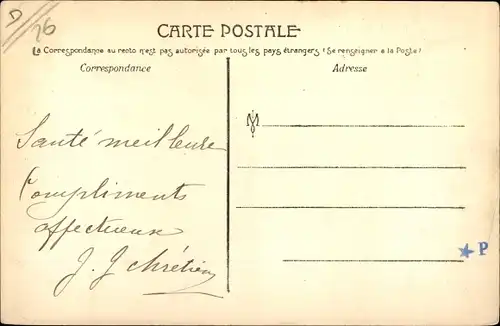 D
26
CARTE POSTALE
La Correspondance au recto n'est pas autorisée par tous les pays étrangers (Se renseigner à la Poste)
Correspondance
Adresse
M
Santé meilleure
Compliments
affectueux
J. J Chrétien
P